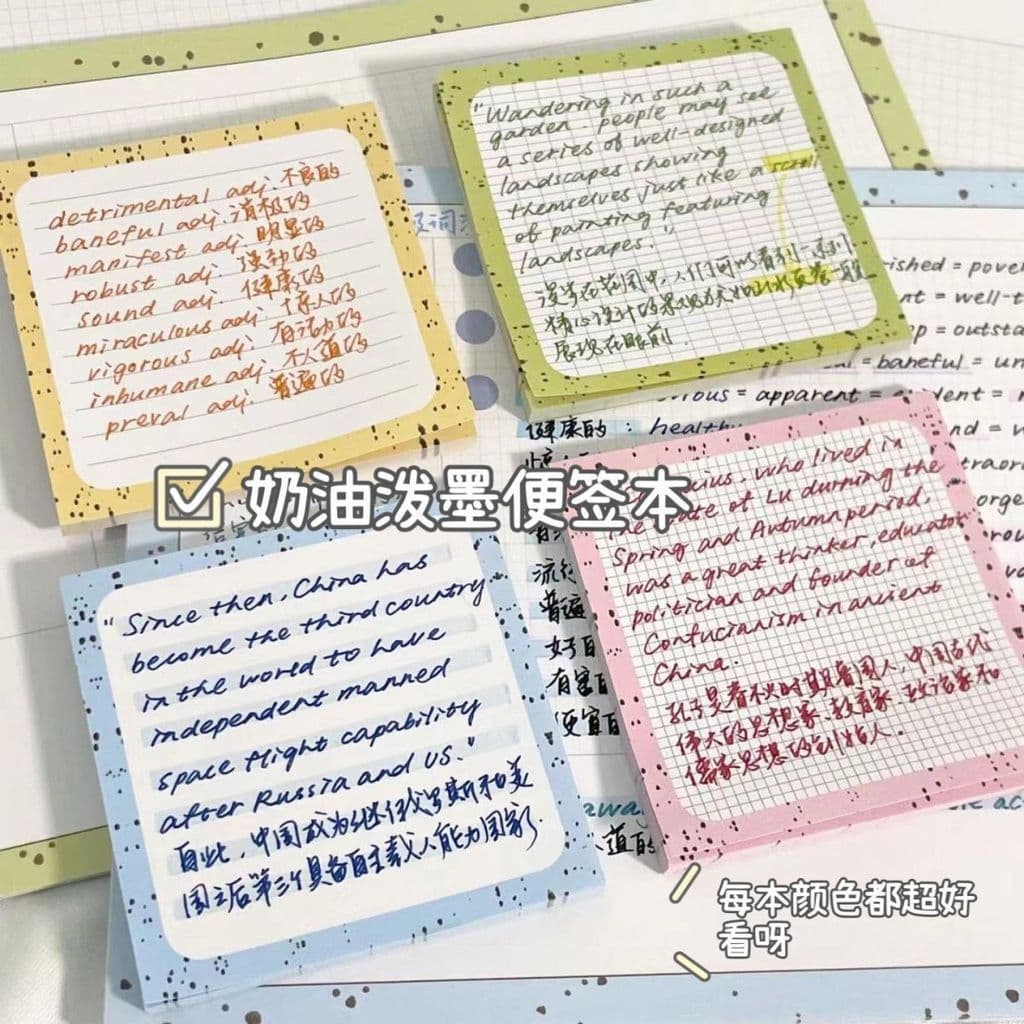 detrimental adj. 不良的
baneful adj. 消极的
manifest adj. 明显的
robust adj. 强劲的
sound adj. 健康的
miraculous adj. 惊人的
vigorous adj. 有活力的
inhumane adj. 不人道的
preval adj. 普遍的
"Wandering in such a
garden. people may see
a series of well-designed
landscapes showing
themselves just like a scroll
of painting featuring
landscapes."
漫步在花园中,人们可以看到一系列
精心设计的景观犹如山水画卷一般
展现在眼前.
ished = pover
nt = well-t
p = outsta
al = baneful = un
vious = apparent = e dent =
健康的: healthy
☑ 奶油泼墨便签本
cius, who lived in
the state of Lu durning the
Spring and Autumn period,
was a great thinker, educator
politician and founder of
Confucianism in ancient
China.
孔子是春秋时期鲁国人,中国古代
伟大的思想家、教育家、政治家和
儒家思想的创始人.
"Since then, China has
become the third country
in the world to have
independent manned
space flight capability
after Russia and US."
自此,中国成为继俄罗斯和美
国之后第三个具备自主载人能力国家.
流行
普遍
好自
有害的
便宜的
人道的
每本颜色都超好
看呀